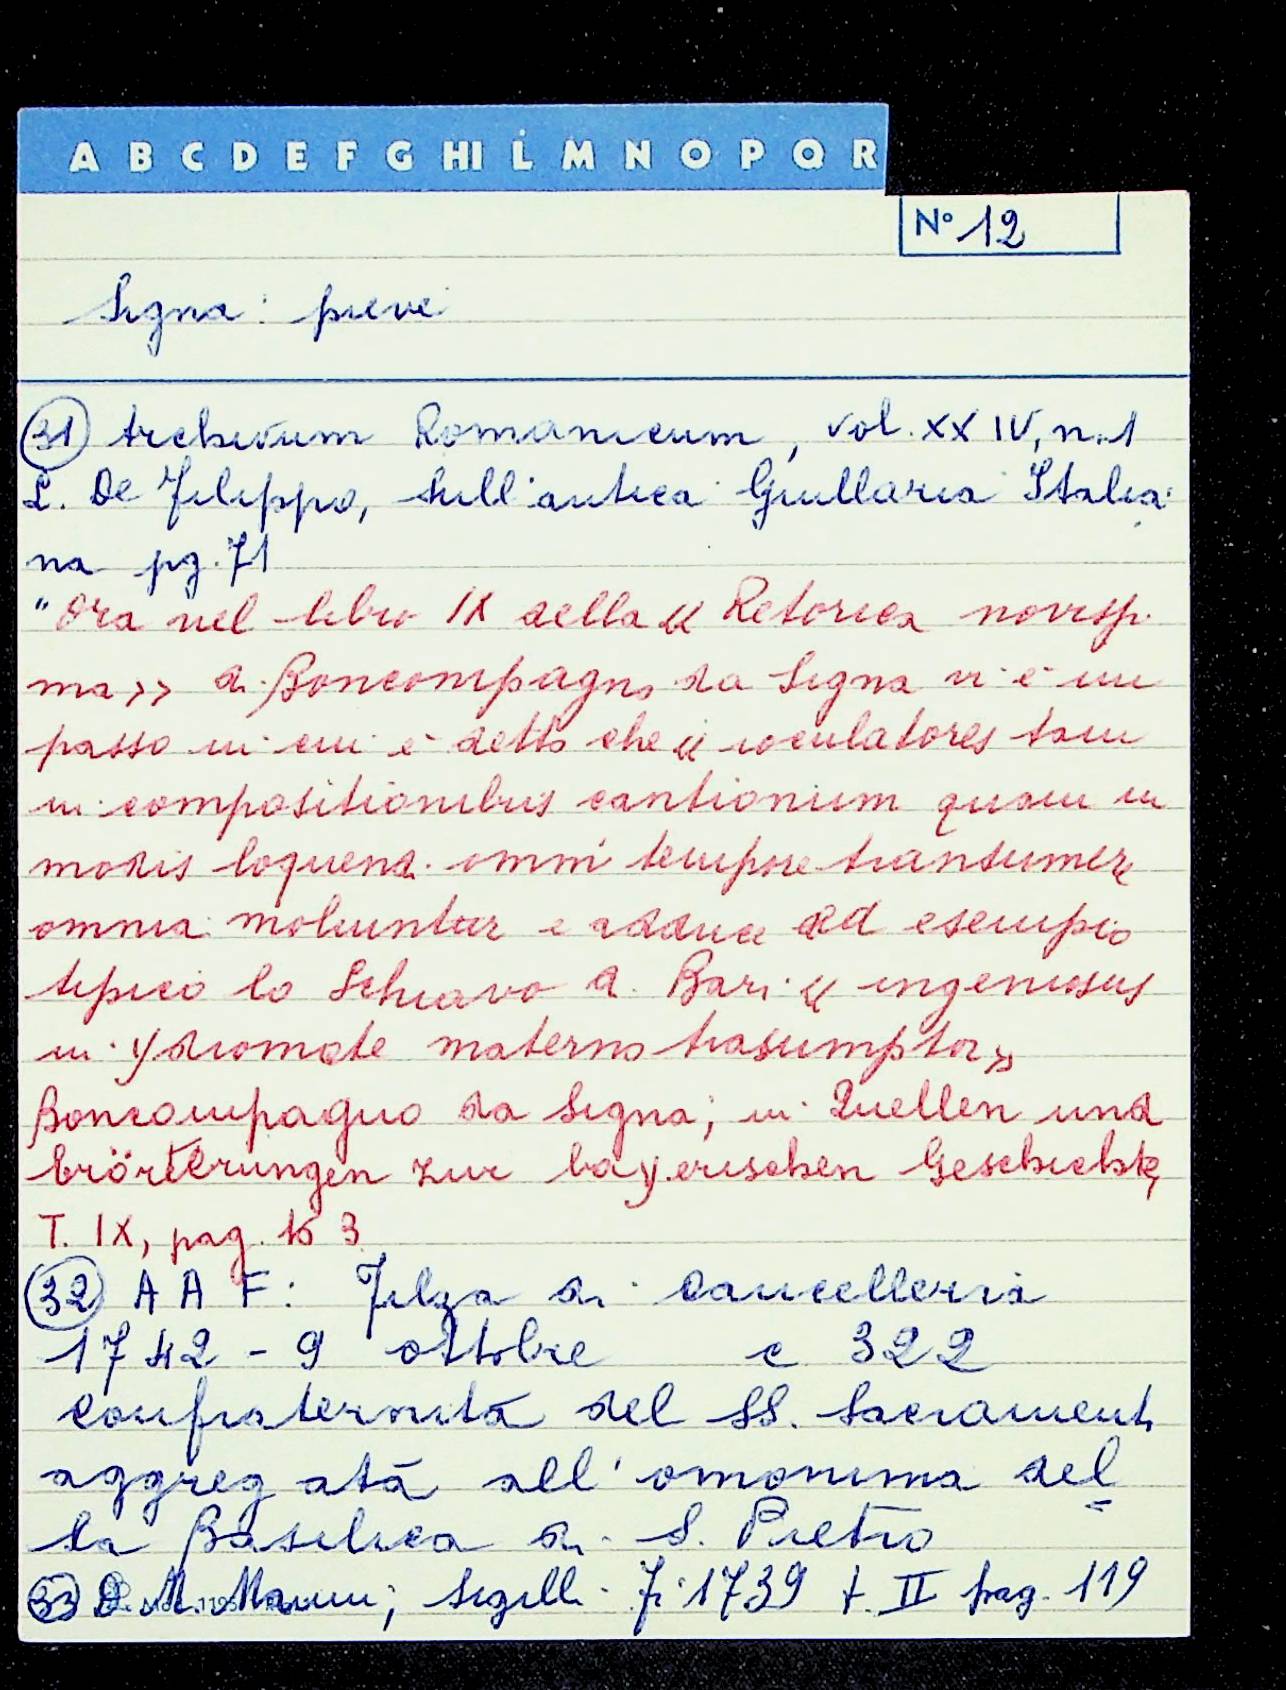 A B C D E F G HI L M N O P Q R
Nº 12
Signa: pieve
31 Archivum Romanicum, vol. XXIV, n. 1
L. De Filippo, Sull'antica Giullaria Italia-
na pg. 71
"Ora nel libro IX della « Retorica novissi-
ma » di Boncompagno da Signa vi è un
passo in cui è detto che « ioculatores tam
in compositionibus cantionum quam in
modis loquendi omni tempore transumere
omnia moliuntur e adduce ad esempio
tipico lo Schiavo di Bari « ingeniosus
in ydiomate materno trasumptor »
Boncompagno da Signa; in Quellen und
Erörterungen zur bayerischen Geschichte,
T. IX, pag. 163
32 A A F: Filza di Cancelleria
1742 - 9 ottobre c 322
Confraternità del SS. Sacramento
aggregata all'omonima del
la Basilica di S. Pietro
33 D. M. Manni; Sigilli Fi 1739 t. II pag. 119